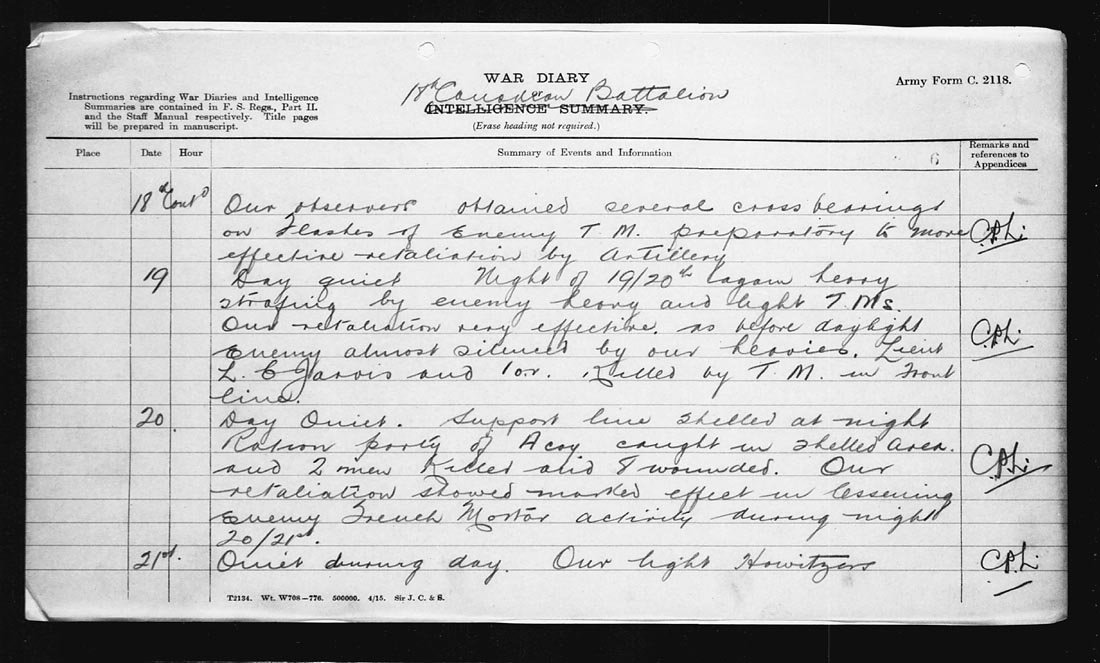 WAR DIARY
Army Form C. 2118.
18th Canadian Battalion
or
INTELLIGENCE SUMMARY.
(Erase heading not required.)
Instructions regarding War Diaries and Intelligence
Summaries are contained in F. S. Regs., Part II.
and the Staff Manual respectively. Title pages
will be prepared in manuscript.
Place Date Hour Summary of Events and Information 6 Remarks and
references to
Appendices
18th Contd Our observers obtained several cross bearings
on Flashes of Enemy T.M. preparatory to more
effective retaliation by Artillery
19 Day quiet Night of 19/20th again heavy
strafing by enemy heavy and light T.Ms.
Our retaliation very effective. as before daylight
Enemy almost silenced by our heavies. Lieut
L. C Jarvis and 1 o.r. Killed by T.M. in Front
line.
20 Day Quiet. Support line shelled at night
Ration party of A coy caught in shelled area.
and 2 men Killed and 8 wounded. Our
retaliation showed marked effect in lessening
Enemy Trench Mortar activity during night
20/21st.
21st. Quiet during day. Our light Howitzers
T2134. Wt. W708—776. 500000. 4/15. Sir J. C. & S.